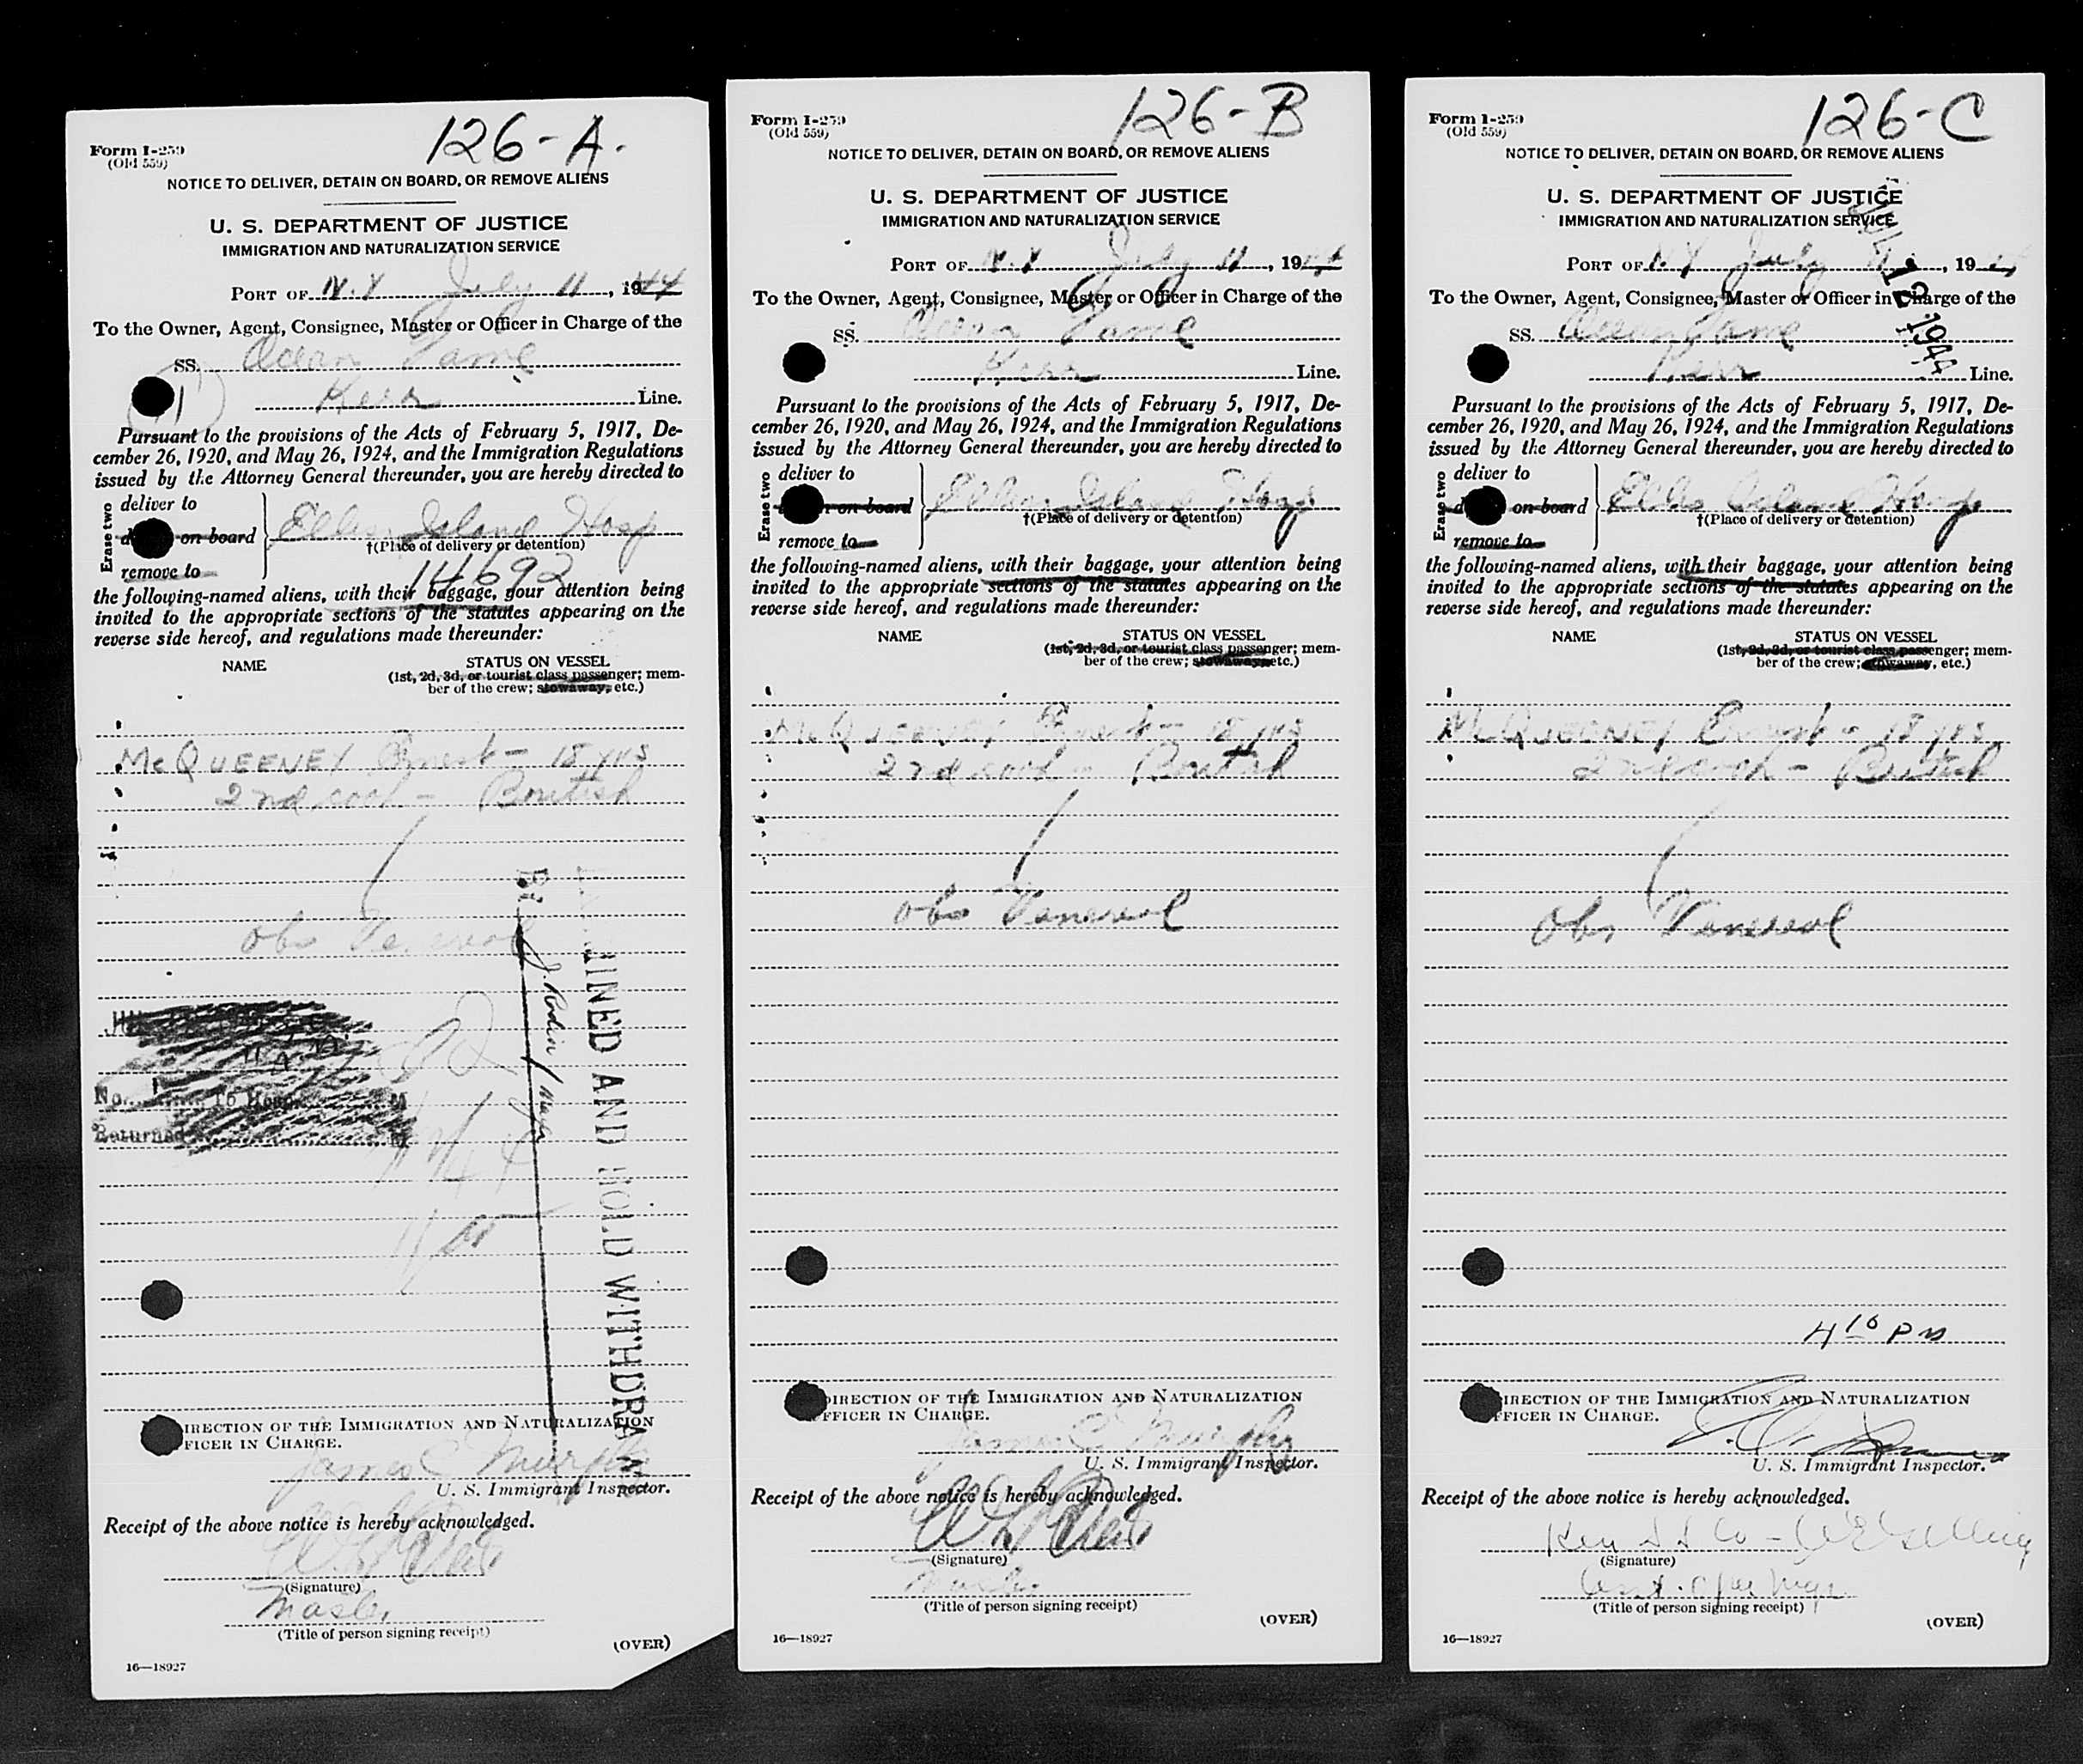 126-A.
Form I-259
(Old 559)
NOTICE TO DELIVER, DETAIN ON BOARD, OR REMOVE ALIENS
U. S. DEPARTMENT OF JUSTICE
IMMIGRATION AND NATURALIZATION SERVICE
PORT OF N.Y July 11, 1944
To the Owner, Agent, Consignee, Master or Officer in Charge of the
SS. Ocean Fame
Kerr Line.
Pursuant to the provisions of the Acts of February 5, 1917, De-
cember 26, 1920, and May 26, 1924, and the Immigration Regulations
issued by the Attorney General thereunder, you are hereby directed to
Erase two
deliver to
on board
remove to
Ellis Island Hosp
†(Place of delivery or detention)
14692
the following-named aliens, with their baggage, your attention being
invited to the appropriate sections of the statutes appearing on the
reverse side hereof, and regulations made thereunder:
NAME STATUS ON VESSEL
(1st, 2d, 3d, or tourist class passenger; mem-
ber of the crew; stowaway, etc.)
McQUEENEY Ernest - 18 yrs
2nd cook - British
Obs Venereal
No. To Hosp. M
Returned M
EXAMINED AND HOLD WITHDRAWN
BY
DIRECTION OF THE IMMIGRATION AND NATURALIZATION
OFFICER IN CHARGE.
James C Murphy
U. S. Immigrant Inspector.
Receipt of the above notice is hereby acknowledged.
(Signature)
Master
(Title of person signing receipt)
(OVER)
16—18927
126-B
Form I-259
(Old 559)
NOTICE TO DELIVER, DETAIN ON BOARD, OR REMOVE ALIENS
U. S. DEPARTMENT OF JUSTICE
IMMIGRATION AND NATURALIZATION SERVICE
PORT OF N.Y July 11, 1944
To the Owner, Agent, Consignee, Master or Officer in Charge of the
SS. Ocean Fame
Kerr Line.
Pursuant to the provisions of the Acts of February 5, 1917, De-
cember 26, 1920, and May 26, 1924, and the Immigration Regulations
issued by the Attorney General thereunder, you are hereby directed to
Erase two
deliver to
on board
remove to
Ellis Island Hosp
†(Place of delivery or detention)
the following-named aliens, with their baggage, your attention being
invited to the appropriate sections of the statutes appearing on the
reverse side hereof, and regulations made thereunder:
NAME STATUS ON VESSEL
(1st, 2d, 3d, or tourist class passenger; mem-
ber of the crew; stowaway, etc.)
McQUEENEY Ernest - 18 yrs
2nd cook - British
Obs Venereal
DIRECTION OF THE IMMIGRATION AND NATURALIZATION
OFFICER IN CHARGE.
James C Murphy
U. S. Immigrant Inspector.
Receipt of the above notice is hereby acknowledged.
(Signature)
Master
(Title of person signing receipt)
(OVER)
16—18927
126-C
Form I-259
(Old 559)
NOTICE TO DELIVER, DETAIN ON BOARD, OR REMOVE ALIENS
U. S. DEPARTMENT OF JUSTICE
IMMIGRATION AND NATURALIZATION SERVICE
JUL 12 1944
PORT OF N.Y July 11, 1944
To the Owner, Agent, Consignee, Master or Officer in Charge of the
SS. Ocean Fame
Kerr Line.
Pursuant to the provisions of the Acts of February 5, 1917, De-
cember 26, 1920, and May 26, 1924, and the Immigration Regulations
issued by the Attorney General thereunder, you are hereby directed to
Erase two
deliver to
on board
remove to
Ellis Island Hosp
†(Place of delivery or detention)
the following-named aliens, with their baggage, your attention being
invited to the appropriate sections of the statutes appearing on the
reverse side hereof, and regulations made thereunder:
NAME STATUS ON VESSEL
(1st, 2d, 3d, or tourist class passenger; mem-
ber of the crew; stowaway, etc.)
McQUEENEY Ernest - 18 yrs
2nd cook - British
Obs Venereal
4 10 PM
DIRECTION OF THE IMMIGRATION AND NATURALIZATION
OFFICER IN CHARGE.
U. S. Immigrant Inspector.
Receipt of the above notice is hereby acknowledged.
Kerr S S Co -
(Signature)
(Title of person signing receipt)
(OVER)
16—18927